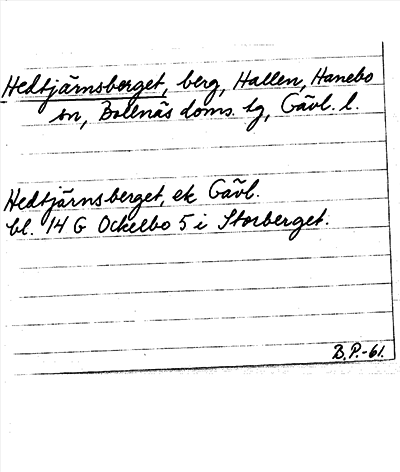 Hedtjärnsberget, berg, Hallen, Hanebo
sn, Bollnäs doms. tg, Gävl. l.
Hedtjärnsberget, ek Gävl.
bl. 14 G Ockelbo 5 i Storberget.
B.P.-61.